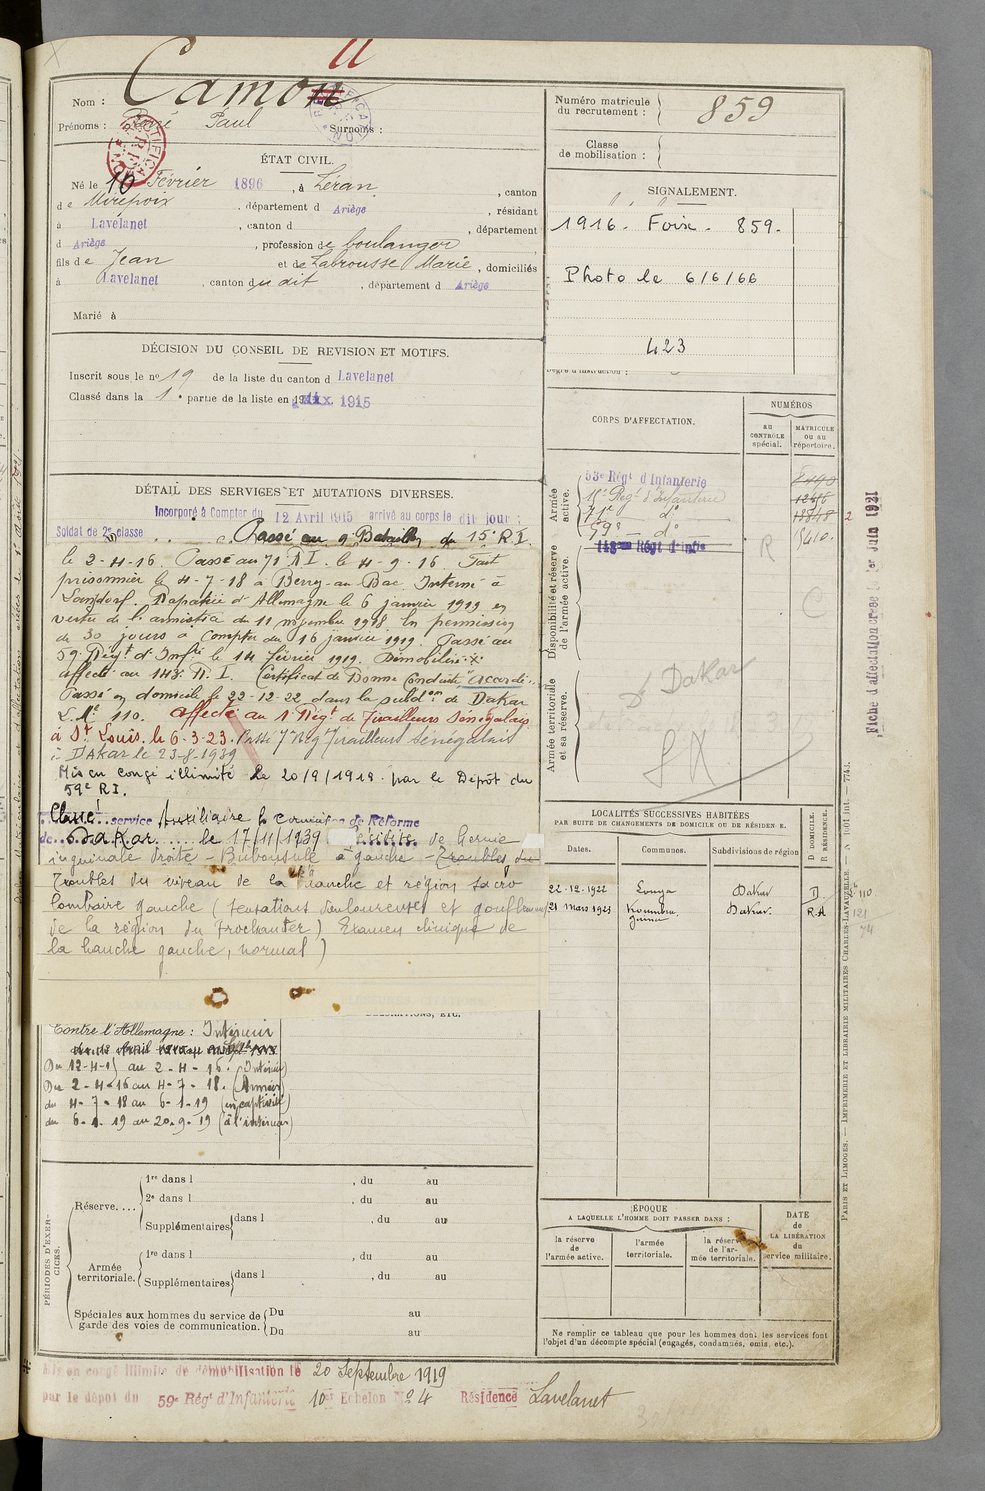 Nom : Camon
Prénoms : René Paul Surnoms :
ÉTAT CIVIL.
Né le 10 Février 1896, à Léran, canton
de Mirepoix, département d Ariège, résidant
à Lavelanet, canton d, département
d Ariège, profession de boulanger
fils de Jean et de Labrousse Marie, domiciliés
à Lavelanet, canton du dit, département d Ariège
Marié à
DÉCISION DU CONSEIL DE REVISION ET MOTIFS.
Inscrit sous le no 19 de la liste du canton d Lavelanet
Classé dans la 1e partie de la liste en 1915
DÉTAIL DES SERVICES ET MUTATIONS DIVERSES.
Incorporé à Compter du 12 Avril 1915 arrivé au corps le dit jour ;
Soldat de 2e classe
Passé au 9e Bataillon du 15e R.I.
le 2-4-16. Passé au 71 R.I. le 4-9-16. Fait
prisonnier le 4-7-18 à Berry-au-Bac Interné à
Rapatrié d'Allemagne le 6 janvier 1919 en
vertu de l'armistice du 11 novembre 1918 En permission
de 30 jours à compter du 16 janvier 1919. Passé au
59e Régt d'Infie le 14 février 1919. Démobilisé
affecté au 143e R.I. Certificat de Bonne Conduite "accordé"
Passé en domicile le 22-12-22 dans la subdon de Dakar
L.Me 110. affecté au 1 Régt de Tirailleurs Sénégalais
à St Louis. le 6-3-23. Passé 7e Rég Tirailleurs Sénégalais
à DAKAR le 23-8-1939
Mis en congé illimité le 20/9/1919 par le Dépôt du
59e RI.
Classé service Auxiliaire Commission de Réforme
de Dakar le 17/11/1939 de hernie
inguinale droite à gauche - Troubles du
Troubles du niveau de la hanche et région sacro
lombaire gauche (sensations douloureuses et gonflement
de la région du trochanter) Examen clinique de
la hanche gauche, normal)
Contre l'Allemagne : Intérieur
Du 12-4-15 au 2-4-16. (Intérieur)
Du 2-4-16 au 4-7-18. (Armées)
du 4-7-18 au 6-1-19 (en captivité)
du 6-1-19 au 20-9-19 (à l'intérieur)
PÉRIODES D'EXERCICES.
Réserve....
1re dans l, du au
2e dans l, du au
Supplémentaires dans l, du au
Armée territoriale.
1re dans l, du au
Supplémentaires dans l, du au
Spéciales aux hommes du service de garde des voies de communication.
Du au
Du au
Mis en congé illimité de démobilisation le 20 Septembre 1919
par le dépôt du 59e Régt d'Infanterie 10e Echelon No 24 Résidence Lavelanet
Numéro matricule du recrutement : 859
Classe de mobilisation :
SIGNALEMENT.
1916. Foix. 859.
Photo le 6/6/66
423
Degré d'instruction :
CORPS D'AFFECTATION.
NUMÉROS
AU CONTRÔLE spécial.
MATRICULE OU AU répertoire.
Armée active.
53e Régt d'Infanterie
15e Régt d'Infanterie
71e d°
59e d° 5410.
143me Régt d'Infie
Disponibilité et réserve de l'armée active.
R
C
Armée territoriale et sa réserve.
Dt Dakar
LOCALITÉS SUCCESSIVES HABITÉES
PAR SUITE DE CHANGEMENTS DE DOMICILE OU DE RÉSIDENCE.
Dates. Communes. Subdivisions de région
D DOMICILE. R RÉSIDENCE.
22-12-1922 Louga Dakar D 110.
21 mars 1921 Dakar. R.A 121
74
ÉPOQUE
A LAQUELLE L'HOMME DOIT PASSER DANS :
la réserve de l'armée active.
l'armée territoriale.
la réserve de l'armée territoriale.
DATE de LA LIBÉRATION du service militaire.
Ne remplir ce tableau que pour les hommes dont les services font
l'objet d'un décompte spécial (engagés, condamnés, omis, etc.).
Fiche d'affectation créée le 1er Juin 1921
PARIS ET LIMOGES. — IMPRIMERIE ET LIBRAIRIE MILITAIRES CHARLES-LAVAUZELLE.